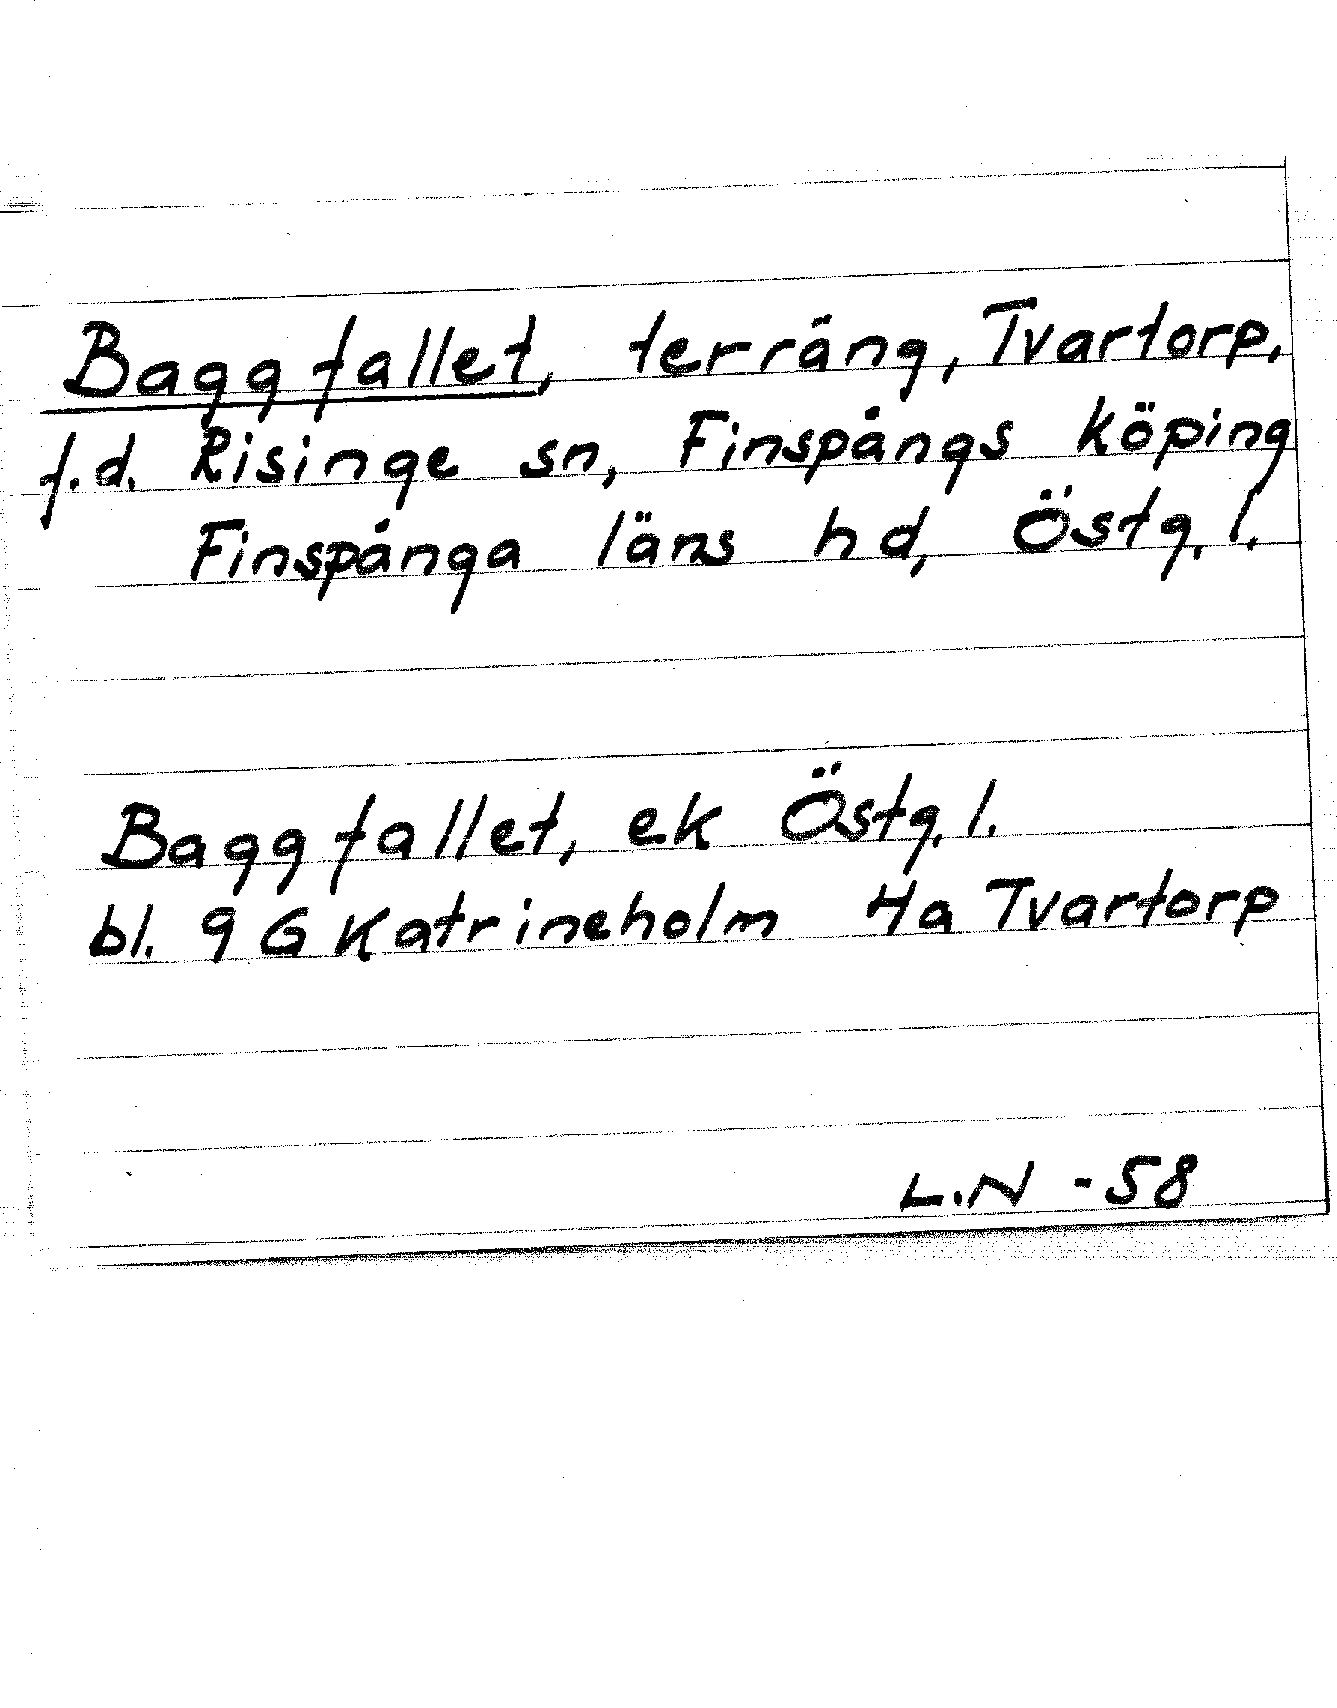 Baggfallet, terräng, Tvartorp,
f.d. Risinge sn, Finspångs köping
Finspånga läns hd, Östg. l.
Baggfallet, ek Östg. l.
bl. 9 G Katrineholm 4a Tvartorp
L.N -58